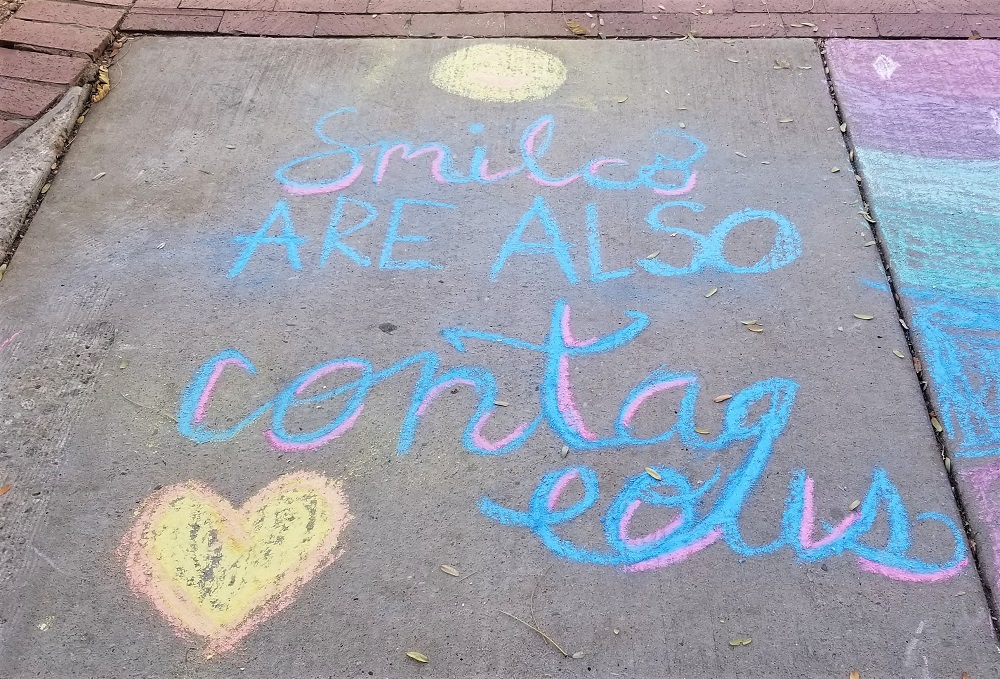 Smiles
ARE ALSO
contag
eous